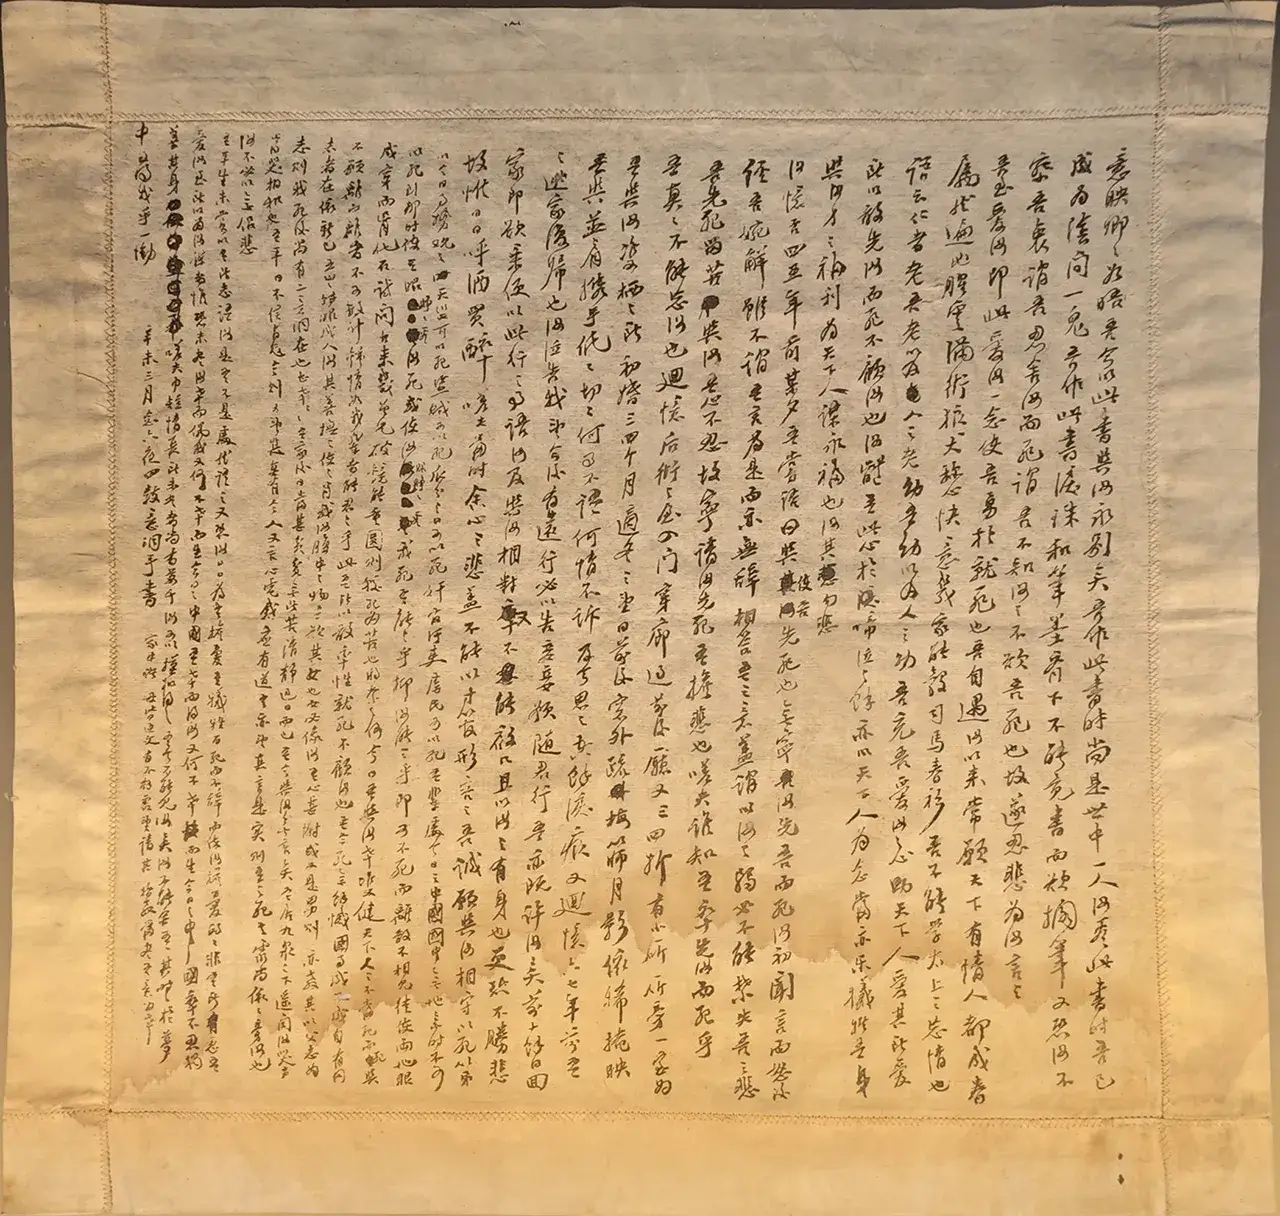 意映卿卿如晤吾今以此書與汝永別矣吾作此書時尚是世中一人汝看此書時吾已
成為陰間一鬼吾作此書淚珠和筆墨齊下不能竟書而欲擱筆又恐汝不
察吾衷謂吾忍舍汝而死謂吾不知汝之不欲吾死也故遂忍悲為汝言之
吾至愛汝即此愛汝一念使吾勇於就死也吾自遇汝以來常願天下有情人都成眷
屬然遍地腥雲滿街狼犬稱心快意幾家能彀司馬春衫吾不能學太上之忘情也
語云仁者老吾老以及人之老幼吾幼以及人之幼吾充吾愛汝之心助天下人愛其所愛
所以敢先汝而死不顧汝也汝體吾此心於啼泣之餘亦以天下人為念當亦樂犧牲吾身
與汝身之福利為天下人謀永福也汝其勿悲
汝憶否四五年前某夕吾嘗語曰與使吾先死也無寧汝先吾而死汝初聞言而怒後
經吾婉解雖不謂吾言為是而亦無辭相答吾之意蓋謂以汝之弱必不能禁失吾之悲
吾先死留苦與汝吾心不忍故寧請汝先死吾擔悲也嗟夫誰知吾卒先汝而死乎
吾真真不能忘汝也迴憶后街之屋入門穿廊過前後廳又三四折有小廳廳旁一室為
吾與汝雙栖之所初婚三四个月適冬之望日前後窗外疏梅篩月影依稀掩映
吾與並肩攜手低低切切何事不語何情不訴及今思之空餘淚痕又迴憶六七年前吾
之逃家復歸也汝泣告我望今後有遠行必以告妾妾願隨君行吾亦既許汝矣前十餘日回
家即欲乘便以此行之事語汝及與汝相對又不能啟口且以汝之有身也更恐不勝悲
故惟日日呼酒買醉嗟夫當時余心之悲蓋不能以寸管形容之吾誠願與汝相守以死第
以今日事勢觀之天災可以死盜賊可以死瓜分之日可以死奸官污吏虐民可以死吾輩處今日之中國國中無地無時不可
以死到那時使吾眼睜睜看汝死或使汝眼睜睜看我死吾能之乎抑汝能之乎即可不死而離散不相見徒使兩地眼
成穿而骨化石試問古來幾曾見破鏡能重圓則較死為苦也將奈之何今日吾與汝幸雙健天下人之不當死而死與
不願離而離者不可數計鍾情如我輩者能忍之乎此吾所以敢率性就死不顧汝也吾今死無餘憾國事成不成自有同
志者在依新已五歲轉眼成人汝其善撫之使之肖我汝腹中之物吾疑其女也女必像汝吾心甚慰或又是男則亦教其以父志為
志則我死後尚有二意洞在也甚幸甚幸吾家後日當甚貧貧無所苦清靜過日而已吾今與汝無言矣吾居九泉之下遙聞汝哭聲
當哭相和也吾平日不信有鬼今則又望其真有今人又言心電感應有道吾亦望其言是實則吾之死吾靈尚依依旁汝也
汝不必以無侶悲
吾平生未嘗以吾所志語汝是吾不是處然語之又恐汝日日為吾擔憂吾犧牲百死而不辭而使汝擔憂的的非吾所忍吾
愛汝至所以為汝謀者惟恐未盡汝幸而偶我又何不幸而生今日之中國吾幸而得汝又何不幸而生今日之中國卒不忍獨
善其身嗟夫巾短情長所未盡者尚有萬千汝可以模擬得之吾今不能見汝矣汝不能舍吾其時時於夢
中得我乎一慟
辛未三月念六夜四鼓意洞手書
家中諸母皆通文有不解處望請其指教當盡吾意為幸